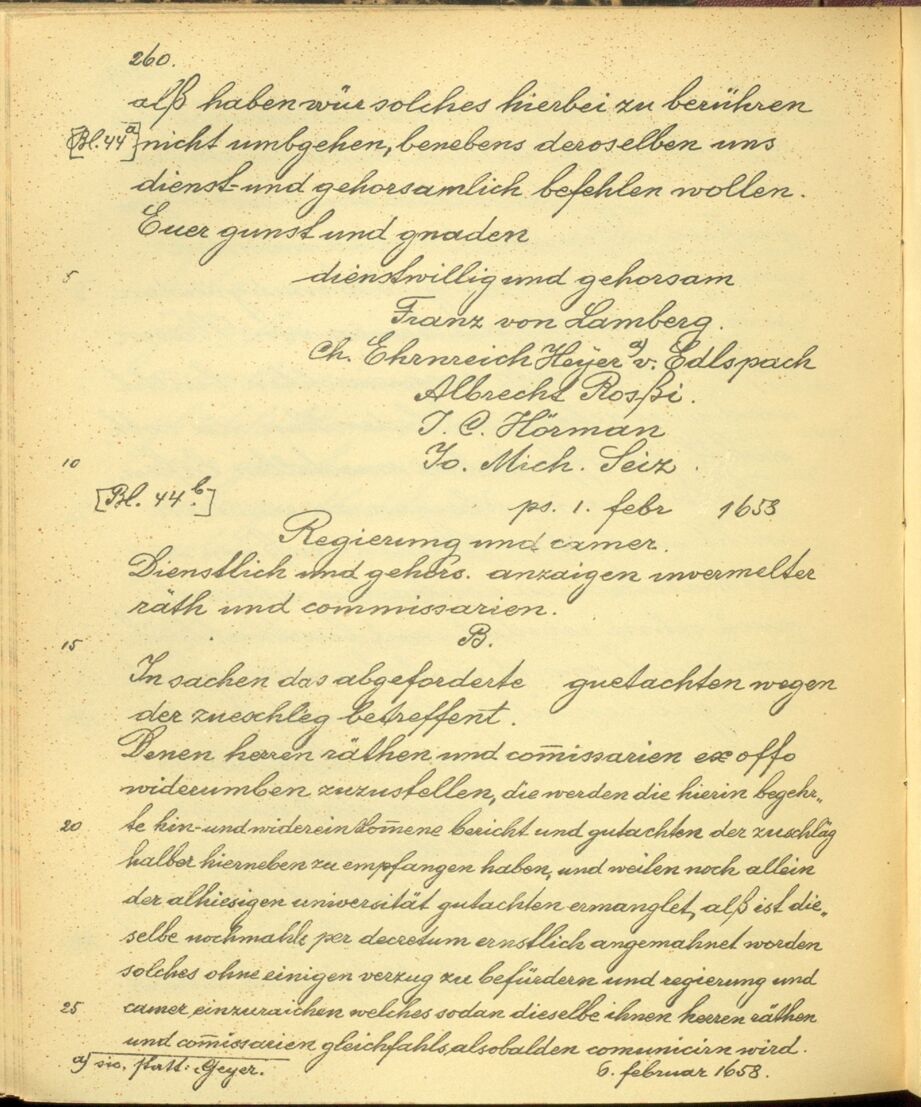 260.
alß haben wür solches hierbei zu berühren
[Bl. 44a] nicht umbgehen, benebens deroselben uns
dienst- und gehorsamlich befehlen wollen.
Euer gunst und gnaden
5 dienstwillig und gehorsam
Franz von Lamberg.
Ch. Ehrnreich Heyer a) v. Edlspach
Albrecht Rosßi.
J. C. Hörman
10 Jo. Mich. Seiz.
[Bl. 44b.] ps. 1. febr 1658
Regierung und camer.
Dienstlich und gehors. anzaigen invermelter
räth und commissarien.
15 B.
In sachen das abgeforderte guetachten wegen
der zueschleg betreffent.
Denen herren räthen und com̄issarien ex offo
widerumben zuzustellen, die werden die hierin begehr„
20 te hin- und widereinkom̄ene bericht und gutachten der zuschläg
halber hierneben zu empfangen haben, und weilen noch allein
der alhiesigen universität gutachten ermanglet, alß ist die„
selbe nochmahls per decretum ernstlich angemahnet worden
solches ohne einigen verzug zu befürdern und regierung und
25 camer einzuraichen welches sodan dieselbe ihnen herren räthen
und com̄issarien gleichfahls alsobalden comunicirn wird.
a) sic, statt: Geyer. 6. februar 1658.